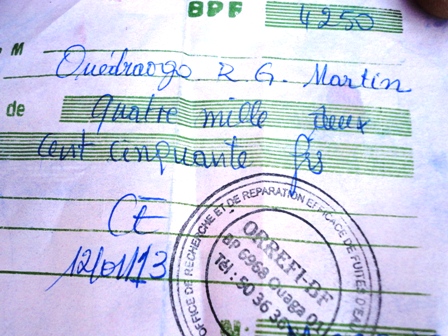 BPF 4250
M Ouédraogo R G. Martin
de quatre mille deux
cent cinquante frs
CE
12/01/13
OFFICE DE RECHERCHE ET DE REPARATION EFFICACE DE FUITES D'EA
ORREFI-BF
BP 6968 Ouaga
Tél : 50 36 3